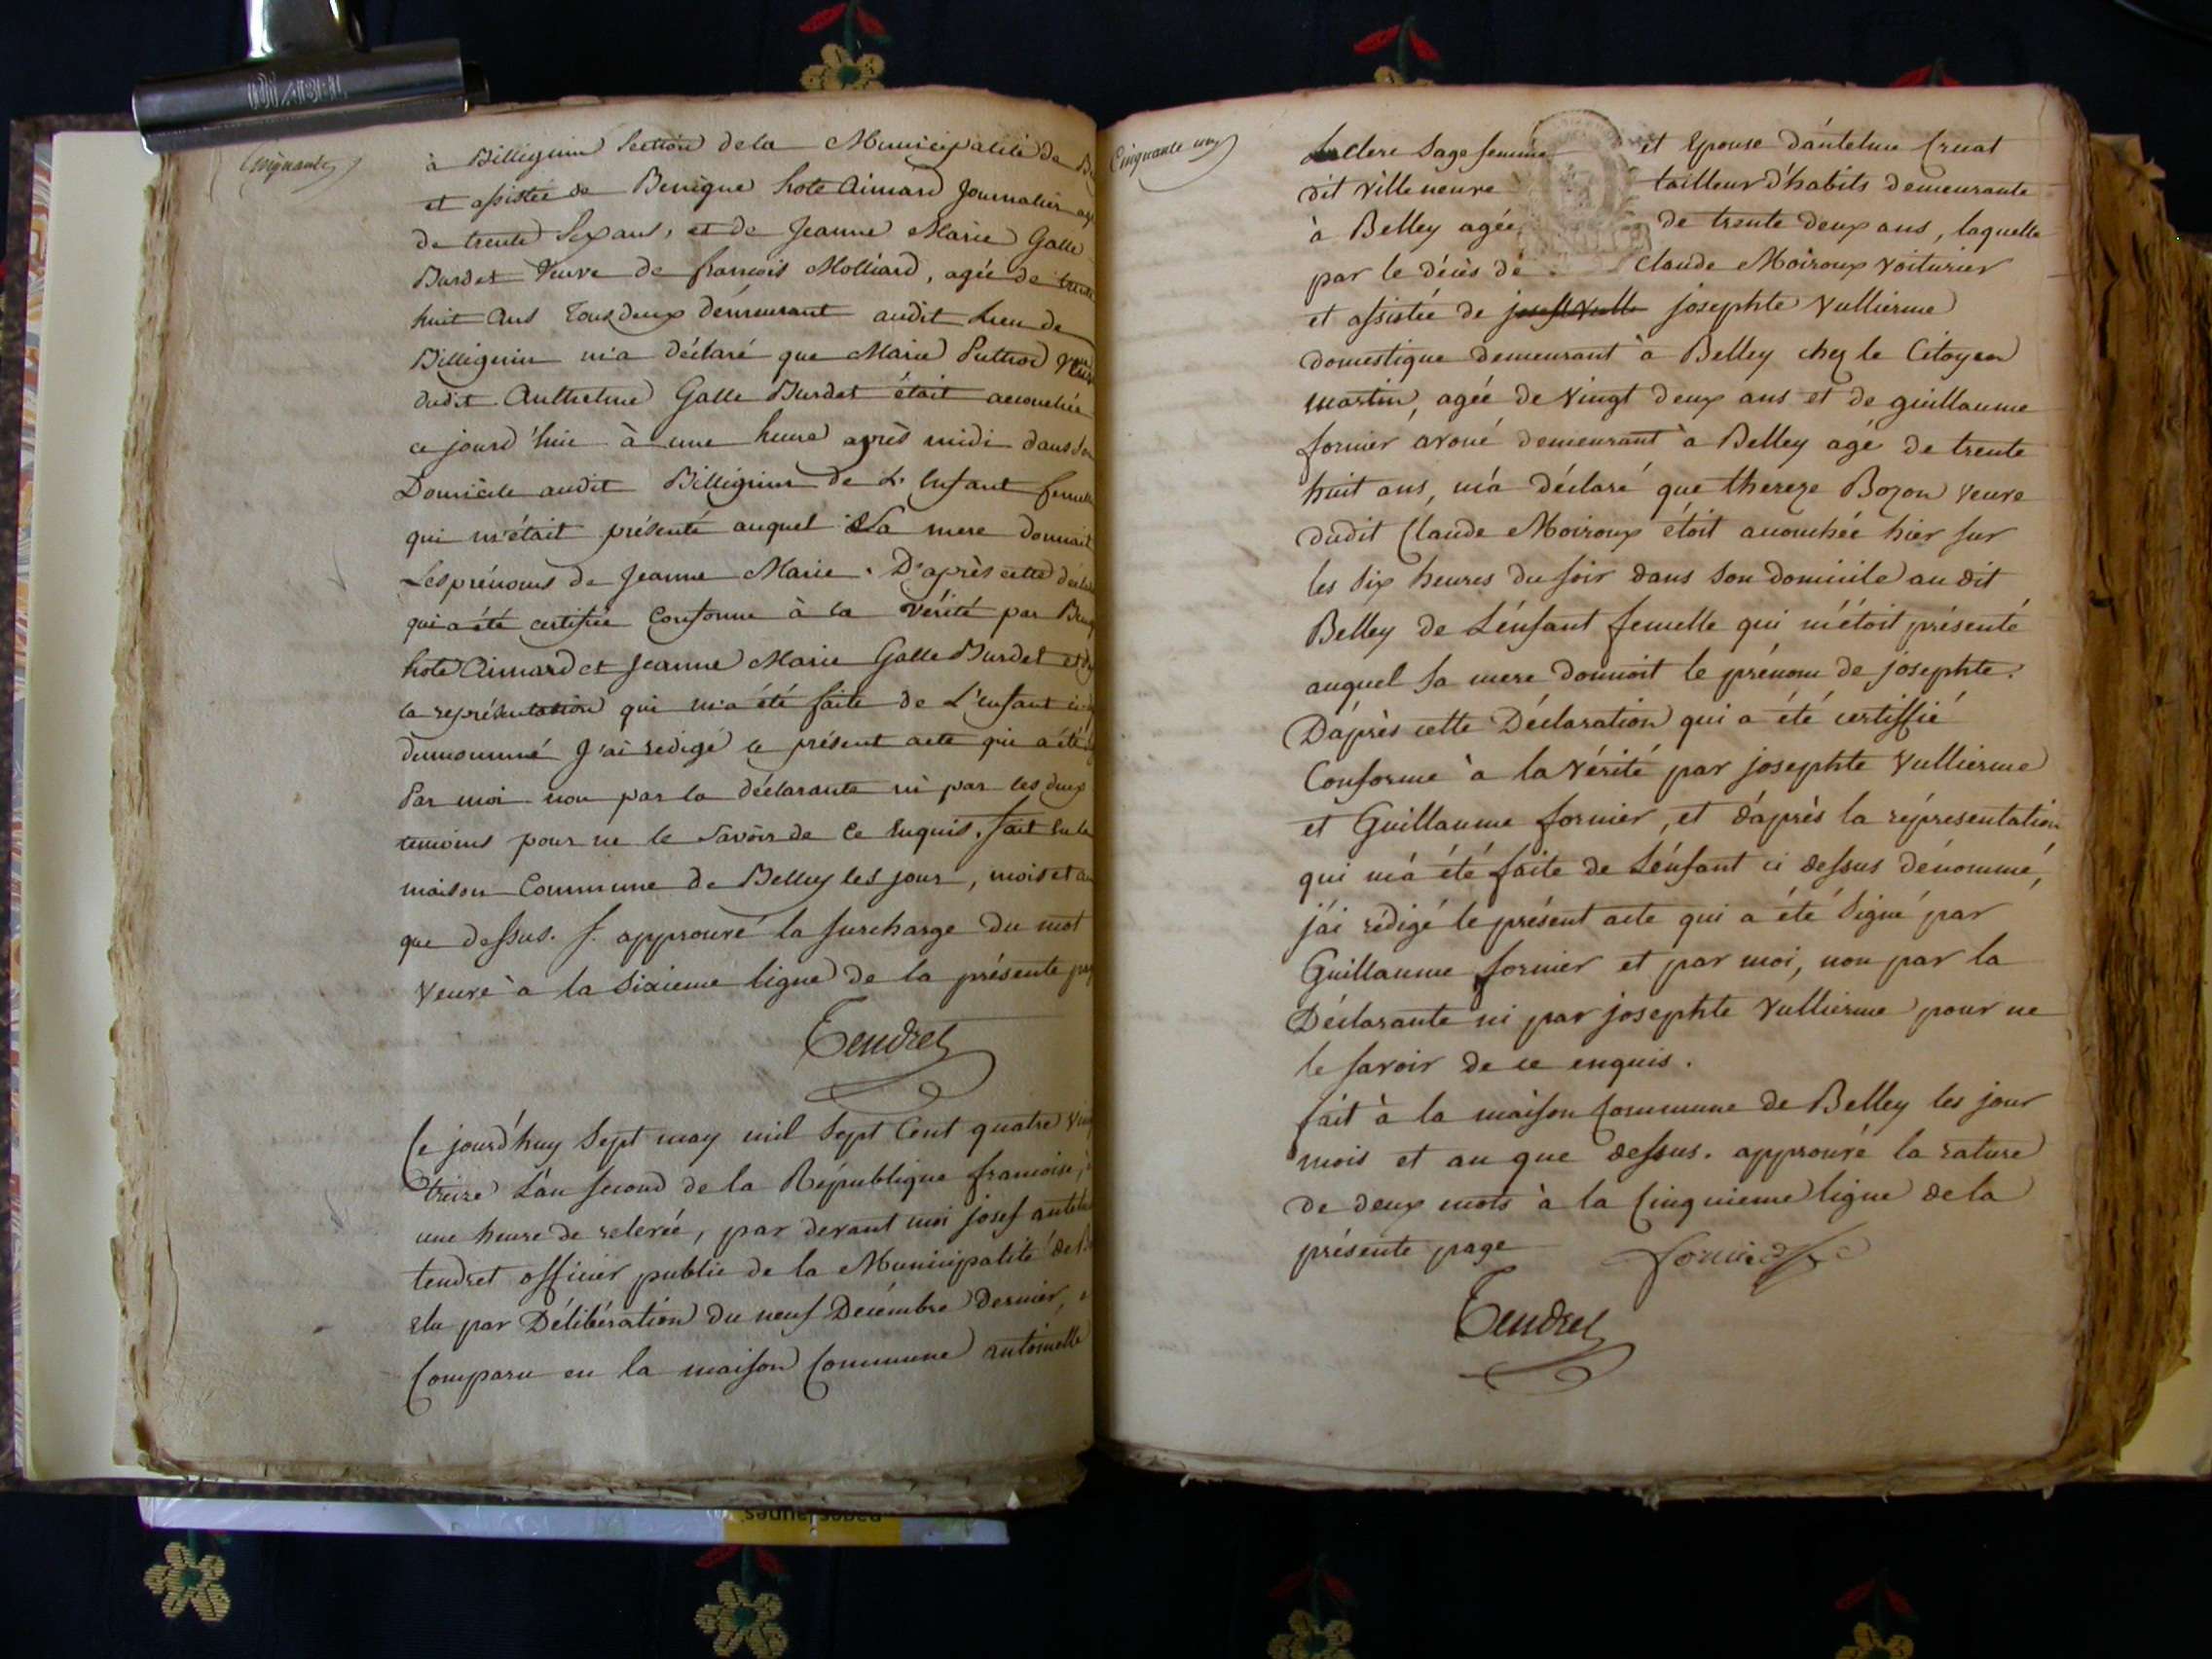 Cinquante
à Billiguin Section de la Municipalité de
et assistée de Benigne hote Aimard Journalier
de trente Six ans, et de Jeanne Marie Galle
Burdet Veuve de françois Molliard, agée de trente
huit ans Tous deux demeurant audit Lieu de
Billiguin m'a déclaré que Marie Veuve
dudit Anthelme Galle Burdet était accouchée
ce jourd'hui à une heure après midi dans son
Domicile audit Billiguin de L'enfant femelle
qui m'était présenté auquel Sa mere donnait
Les prénoms de Jeanne Marie. D'après cette
qui a été certifiée Conforme à la Vérité par
hote Aimard et Jeanne Marie Galle Burdet et
la représentation qui m'a été faite de L'enfant
dénommé J'ai redigé le présent acte qui a été
Par moi non par la déclarante ni par les deux
temoins pour ne le Savoir de Ce Enquis. fait En la
maison Commune de Belley les jour, mois et an
que dessus. J. approuvé la surcharge du mot
Veuve à la Sixieme ligne de la présente page
Tendret
Ce jourd'huy Sept may mil Sept Cent quatre Vingt
treize L'an second de la République françoise, à
une heure de relevée, par devant moi josef antelme
tendret officier public de la Municipalité de
élu par Délibération du neuf Decembre Dernier,
Comparu en la maison Commune antoinette
Cinquante un
Sage femme et Epouse d'antelme Cruat
dit Villeneuve tailleur d'habits demeurante
à Belley agée de trente deux ans, laquelle
par le décès de Claude Moiroux Voiturier
et assistée de josephte Vullierme
domestique demeurant à Belley chez le Citoyen
martin, agée de Vingt deux ans et de guillaume
fornier avoué demeurant à Belley agé de trente
huit ans, m'a déclaré que thereze Bozon Veuve
dudit Claude Moiroux étoit accouchée hier sur
les Six heures du soir dans Son domicile au dit
Belley de L'énfant femelle qui m'étoit présenté
auquel Sa mere donnoit le prénom de josephte.
D'après cette Déclaration qui a été certiffié
Conforme à la Vérité par josephte Vullierme
et Guillaume fornier, et d'après la réprésentation
qui m'a été faite de L'énfant ci dessus dénommé,
j'ai rédigé le présent acte qui a été Signé par
Guillaume fornier et par moi, non par la
Déclarante ni par josephte Vullierme pour ne
le savoir de ce enquis.
fait à la maison Commune de Belley les jour
mois et an que dessus. approuvé la rature
de deux mots à la Cinquieme ligne de la
présente page
Tendret